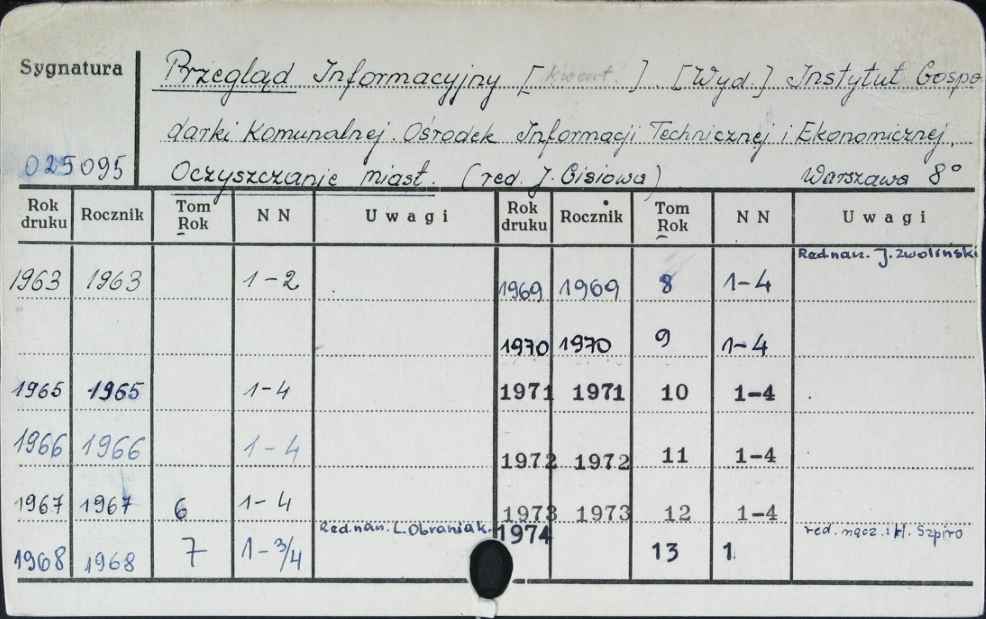 Sygnatura
025095
Przegląd Informacyjny [kwart.]. [Wyd.] Instytut Gospo
darki Komunalnej. Ośrodek Informacji Technicznej i Ekonomicznej.
Oczyszczanie miast. (red. J. Cisiowa) Warszawa 8°
Rok druku Rocznik Tom Rok NN Uwagi Rok druku Rocznik Tom Rok NN Uwagi
Red nan. J. Zwoliński
1963 1963 1-2 1969 1969 8 1-4
1970 1970 9 1-4
1965 1965 1-4 1971 1971 10 1-4
1966 1966 1-4 1972 1972 11 1-4
1967 1967 6 1-4 1973 1973 12 1-4
Red nan. L. Obraniak. red. nacz.: H. Szpiro
1968 1968 7 1-3/4 1974 13 1